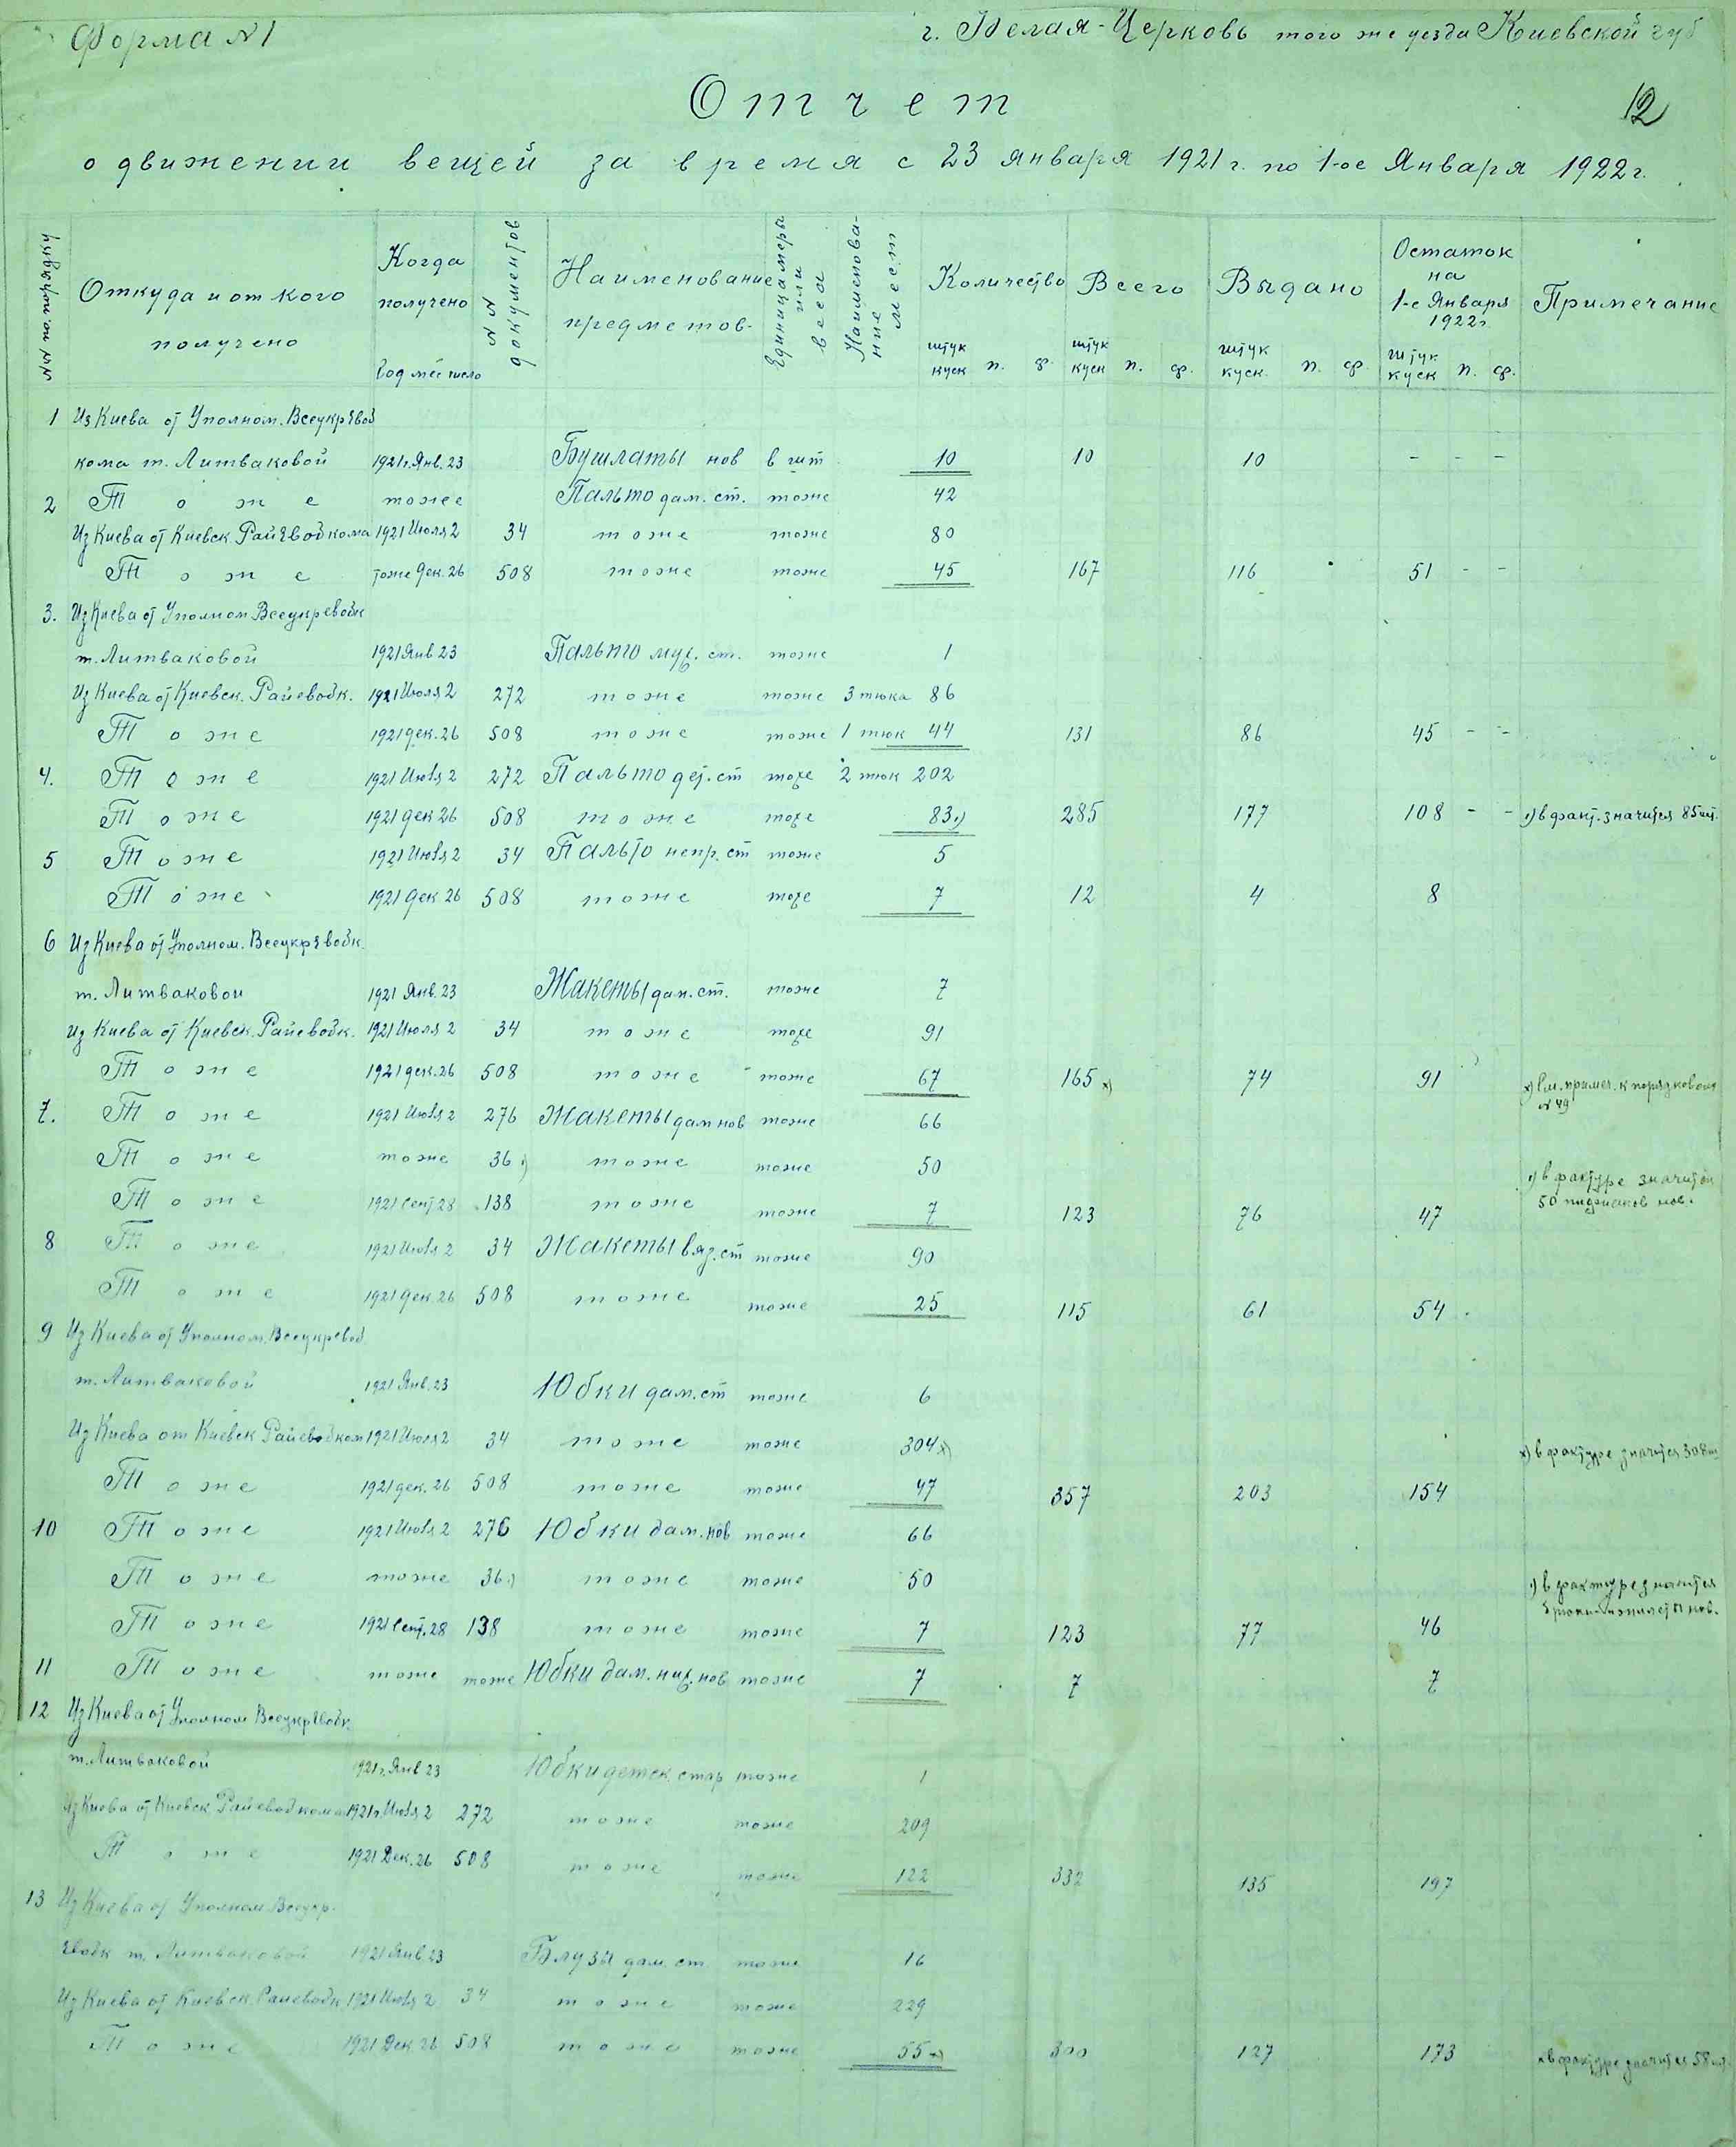 Форма №1
г. Белая-Церковь того же уезда Киевской губ
Отчет
12
о движении вещей за время с 23 января 1921 г. по 1-ое Января 1922 г.
№№ по порядку Откуда и от кого получено Когда получено год мес число №№ документов Наименование предметов. Единица меры или веса Наименование мест Количество штук куск п. ф. Всего штук куск п. ф. Выдано штук куск. п. ф. Остаток на 1-е Января 1922 г. штук куск п. ф. Примечание
1 Из Киева от Уполном. Всеукревод
кома т. Литваковой 1921 г. Янв. 23 Бушлаты нов в шт 10 10 10 - - -
2 Тоже тожее Пальто дам. ст. тоже 42
Из Киева от Киевск Райевобкома 1921 Июля 2 34 тоже тоже 80
Тоже тоже Дек. 26 508 тоже тоже 45 167 116 51 - -
3. Из Киева от Уполном Всеукревобк
т. Литваковой 1921 Янв 23 Пальто муж. ст. тоже 1
Из Киева от Киевск. Райевобк. 1921 Июля 2 272 тоже тоже 3 тюка 86
Тоже 1921 дек. 26 508 тоже тоже 1 тюк 44 131 86 45 - -
4. Тоже 1921 Июля 2 272 Пальто дет. ст тоже 2 тюк 202
Тоже 1921 дек 26 508 тоже тоже 83 ı) 285 177 108 - - ı) в факт. значится 85 шт.
5 Тоже 1921 Июля 2 34 Пальто непр. ст тоже 5
Тоже 1921 Дек 26 508 тоже тоже 7 12 4 8
6 Из Киева от Уполном. Всеукревобк.
т. Литваковои 1921 Янв. 23 Жакеты дам. ст. тоже 7
Из Киева от Киевск. Райевобк. 1921 Июля 2 34 тоже тоже 91
Тоже 1921 дек. 26 508 тоже тоже 67 165 х) 74 91 х) см. примеч. к порядковому
№ 49
7. Тоже 1921 Июля 2 276 Жакеты дам нов тоже 66
Тоже тоже 36 ı) тоже тоже 50 ı) в фактуре значится
50 пиджаков нов.
Тоже 1921 Сент 28 138 тоже тоже 7 123 76 47
8 Тоже 1921 Июля 2 34 Жакеты вяз. ст тоже 90
Тоже 1921 Дек 26 508 тоже тоже 25 115 61 54
9 Из Киева от Уполном. Всеукревоб
т. Литваковой 1921 Янв. 23 Юбки дам. ст тоже 6
Из Киева от Киевск Райевобком 1921 Июля 2 34 тоже тоже 304 х) х) в фактуре значится 308 ш
Тоже 1921 дек. 26 508 тоже тоже 47 357 203 154
10 Тоже 1921 Июля 2 276 Юбки дам. нов тоже 66
Тоже тоже 36 ı) тоже тоже 50 ı) в фактуре значится
нов.
Тоже 1921 Сент. 28 138 тоже тоже 7 123 77 46
11 Тоже тоже тоже Юбки дам. ниж. нов тоже 7 7 7
12 Из Киева от Уполном Всеукревобк
т. Литваковой 1921 г. Янв 23 Юбки детск. стар тоже 1
Из Киева от Киевск Райевобкома 1921 г. Июля 2 272 тоже тоже 209
Тоже 1921 Дек. 26 508 тоже тоже 122 332 135 197
13 Из Киева от Уполном. Всеукр.
евобк т. Литваковой 1921 Янв 23 Блузы дам. ст тоже 16
Из Киева от Киевск. Райевобк 1921 Июля 2 34 тоже тоже 229
Тоже 1921 Дек 26 508 тоже тоже 55 х) 300 127 173 х) в фактуре значится 58 шт